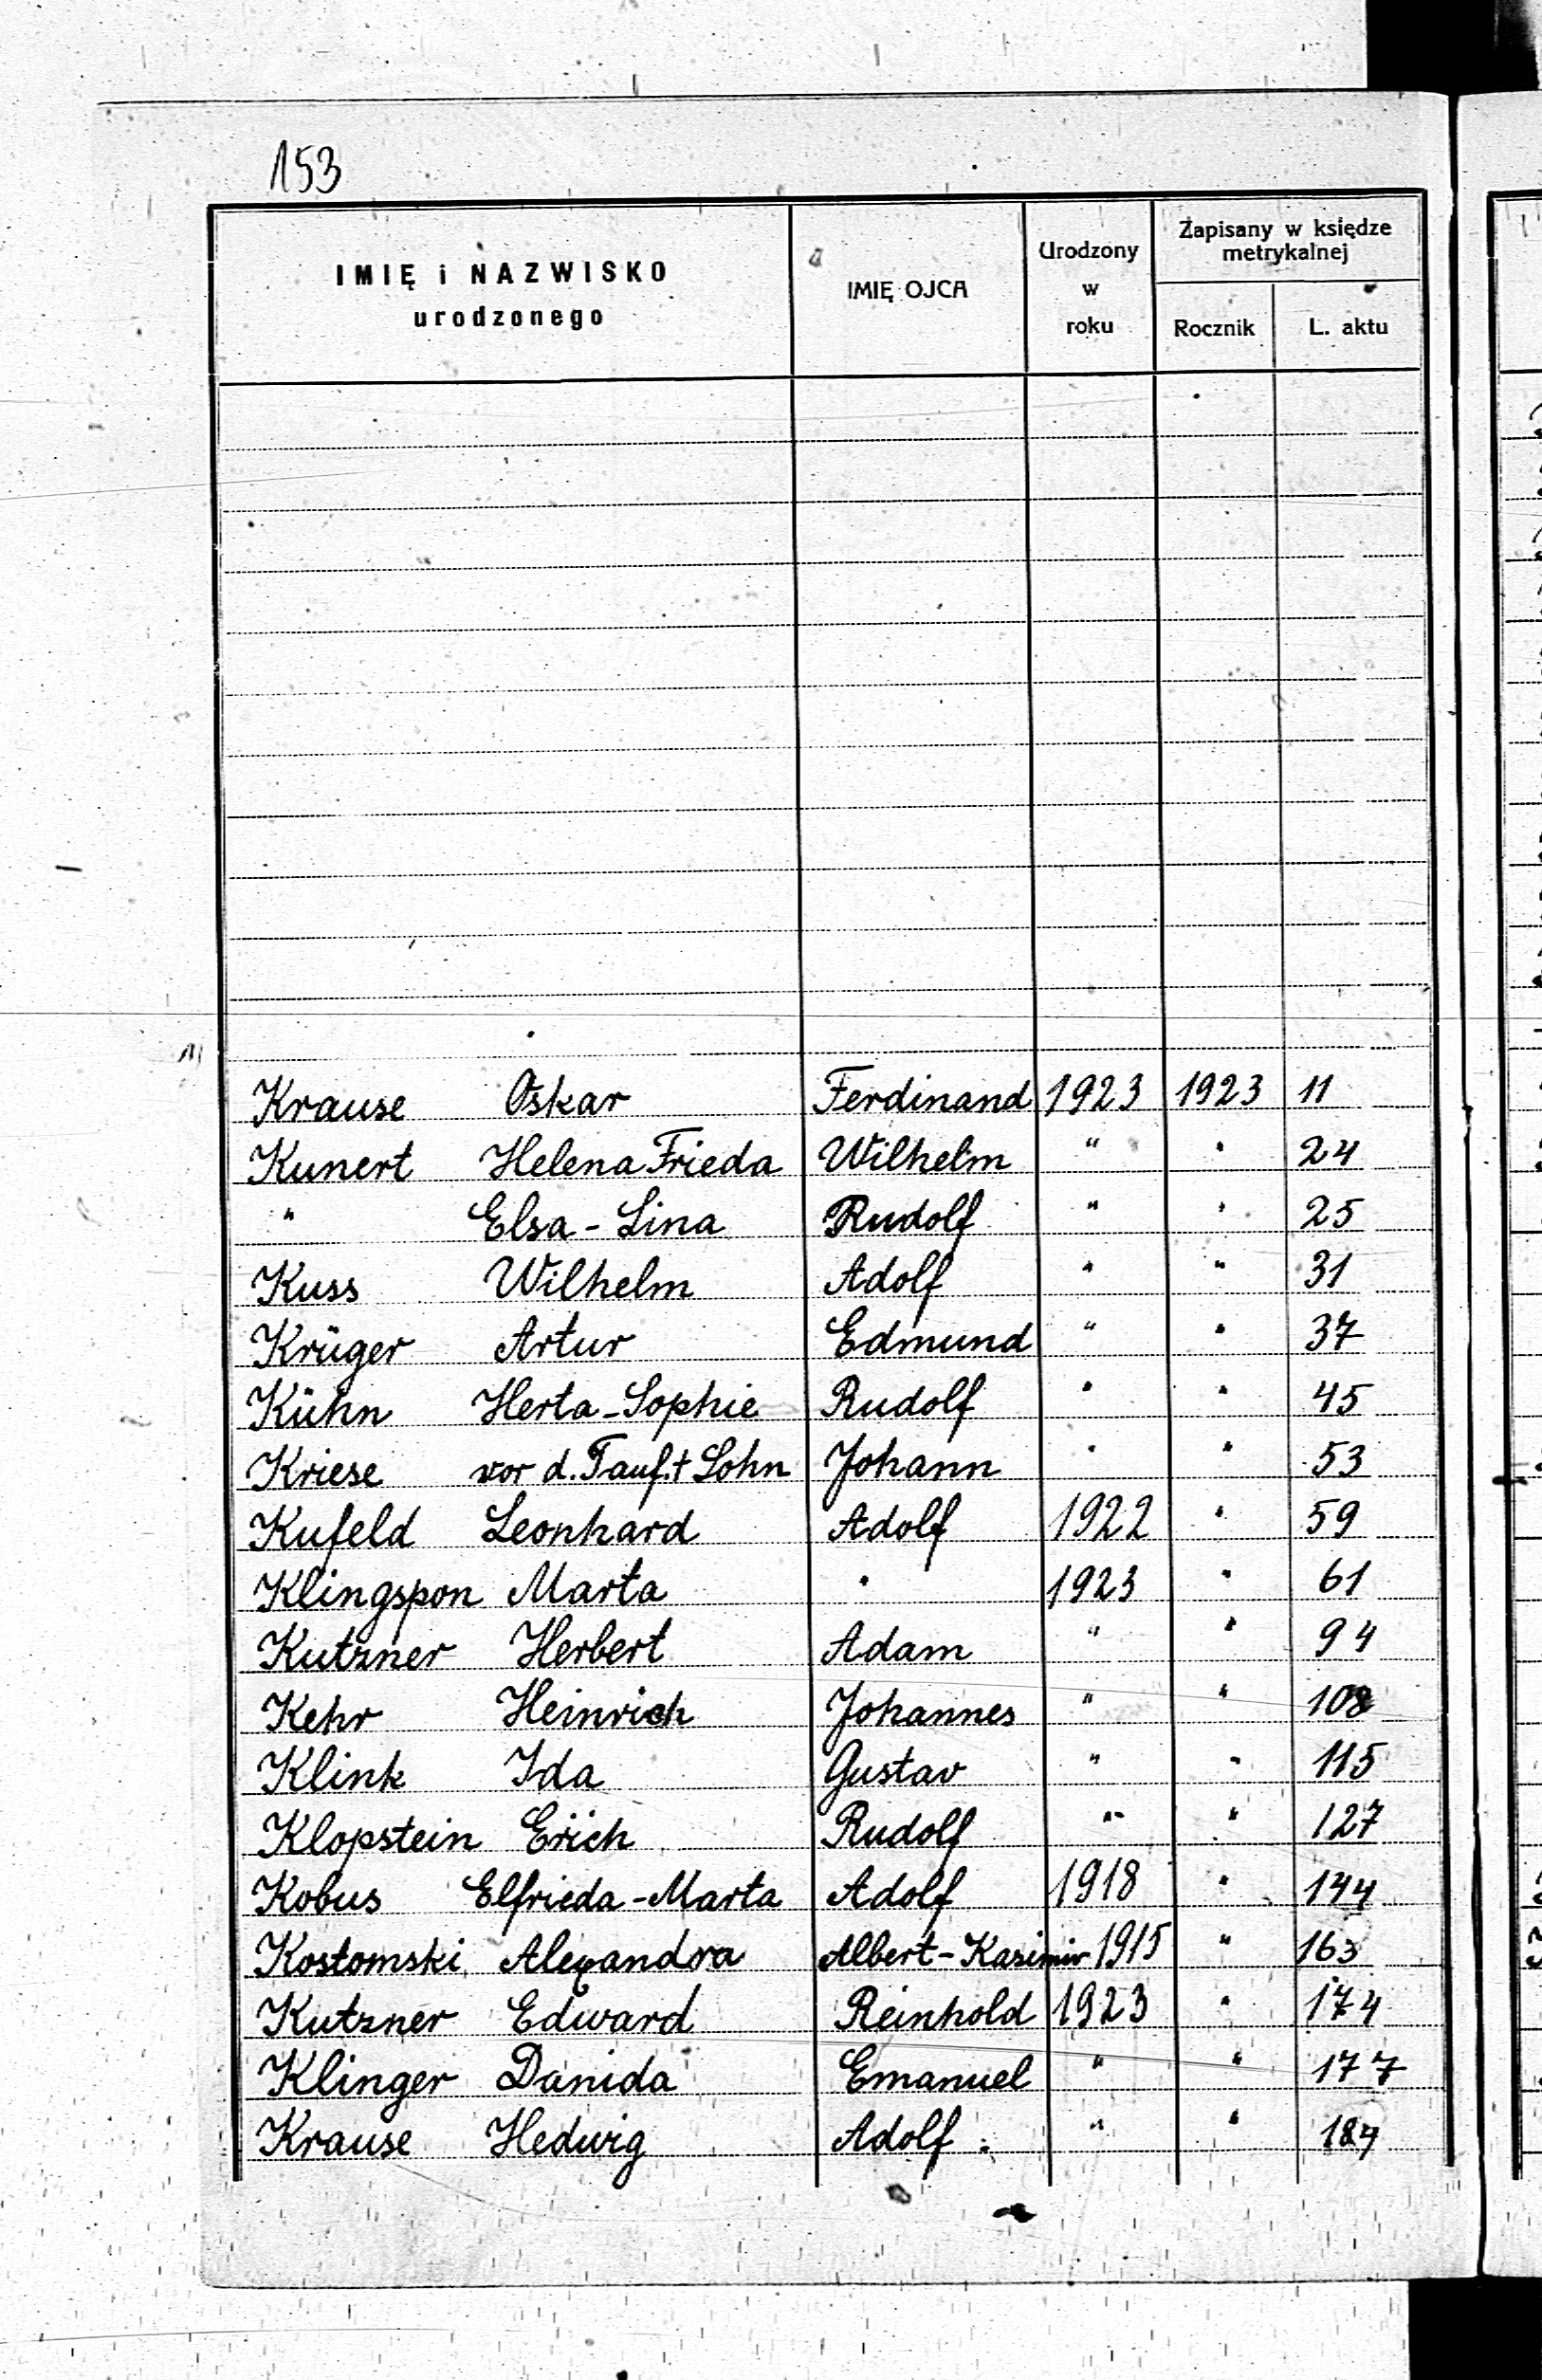 153
IMIĘ i NAZWISKO
urodzonego
IMIĘ OJCA
Urodzony
w
roku
Zapisany w księdze
metrykalnej
Rocznik
L. aktu
Krause Oskar Ferdinand 1923 1923 11
Kunert Helena Frieda Wilhelm " " 24
" Elsa-Lina Rudolf " " 25
Kuss Wilhelm Adolf " " 31
Krüger Artur Edmund " " 37
Kühn Herta-Sophie Rudolf " " 45
Kriese vor d. Tauf. † Sohn Johann " " 53
Kufeld Leonhard Adolf 1922 " 59
Klingspon Marta " 1923 " 61
Kutzner Herbert Adam " " 94
Kehr Heinrich Johannes " " 108
Klink Ida Gustav " " 115
Klopstein Erich Rudolf " " 127
Kobus Elfrieda-Marta Adolf 1918 " 144
Kostomski Alexandra Albert-Kasimir 1915 " 163
Kutzner Edward Reinhold 1923 " 174
Klinger Danida Emanuel " " 177
Krause Hedwig Adolf " " 184